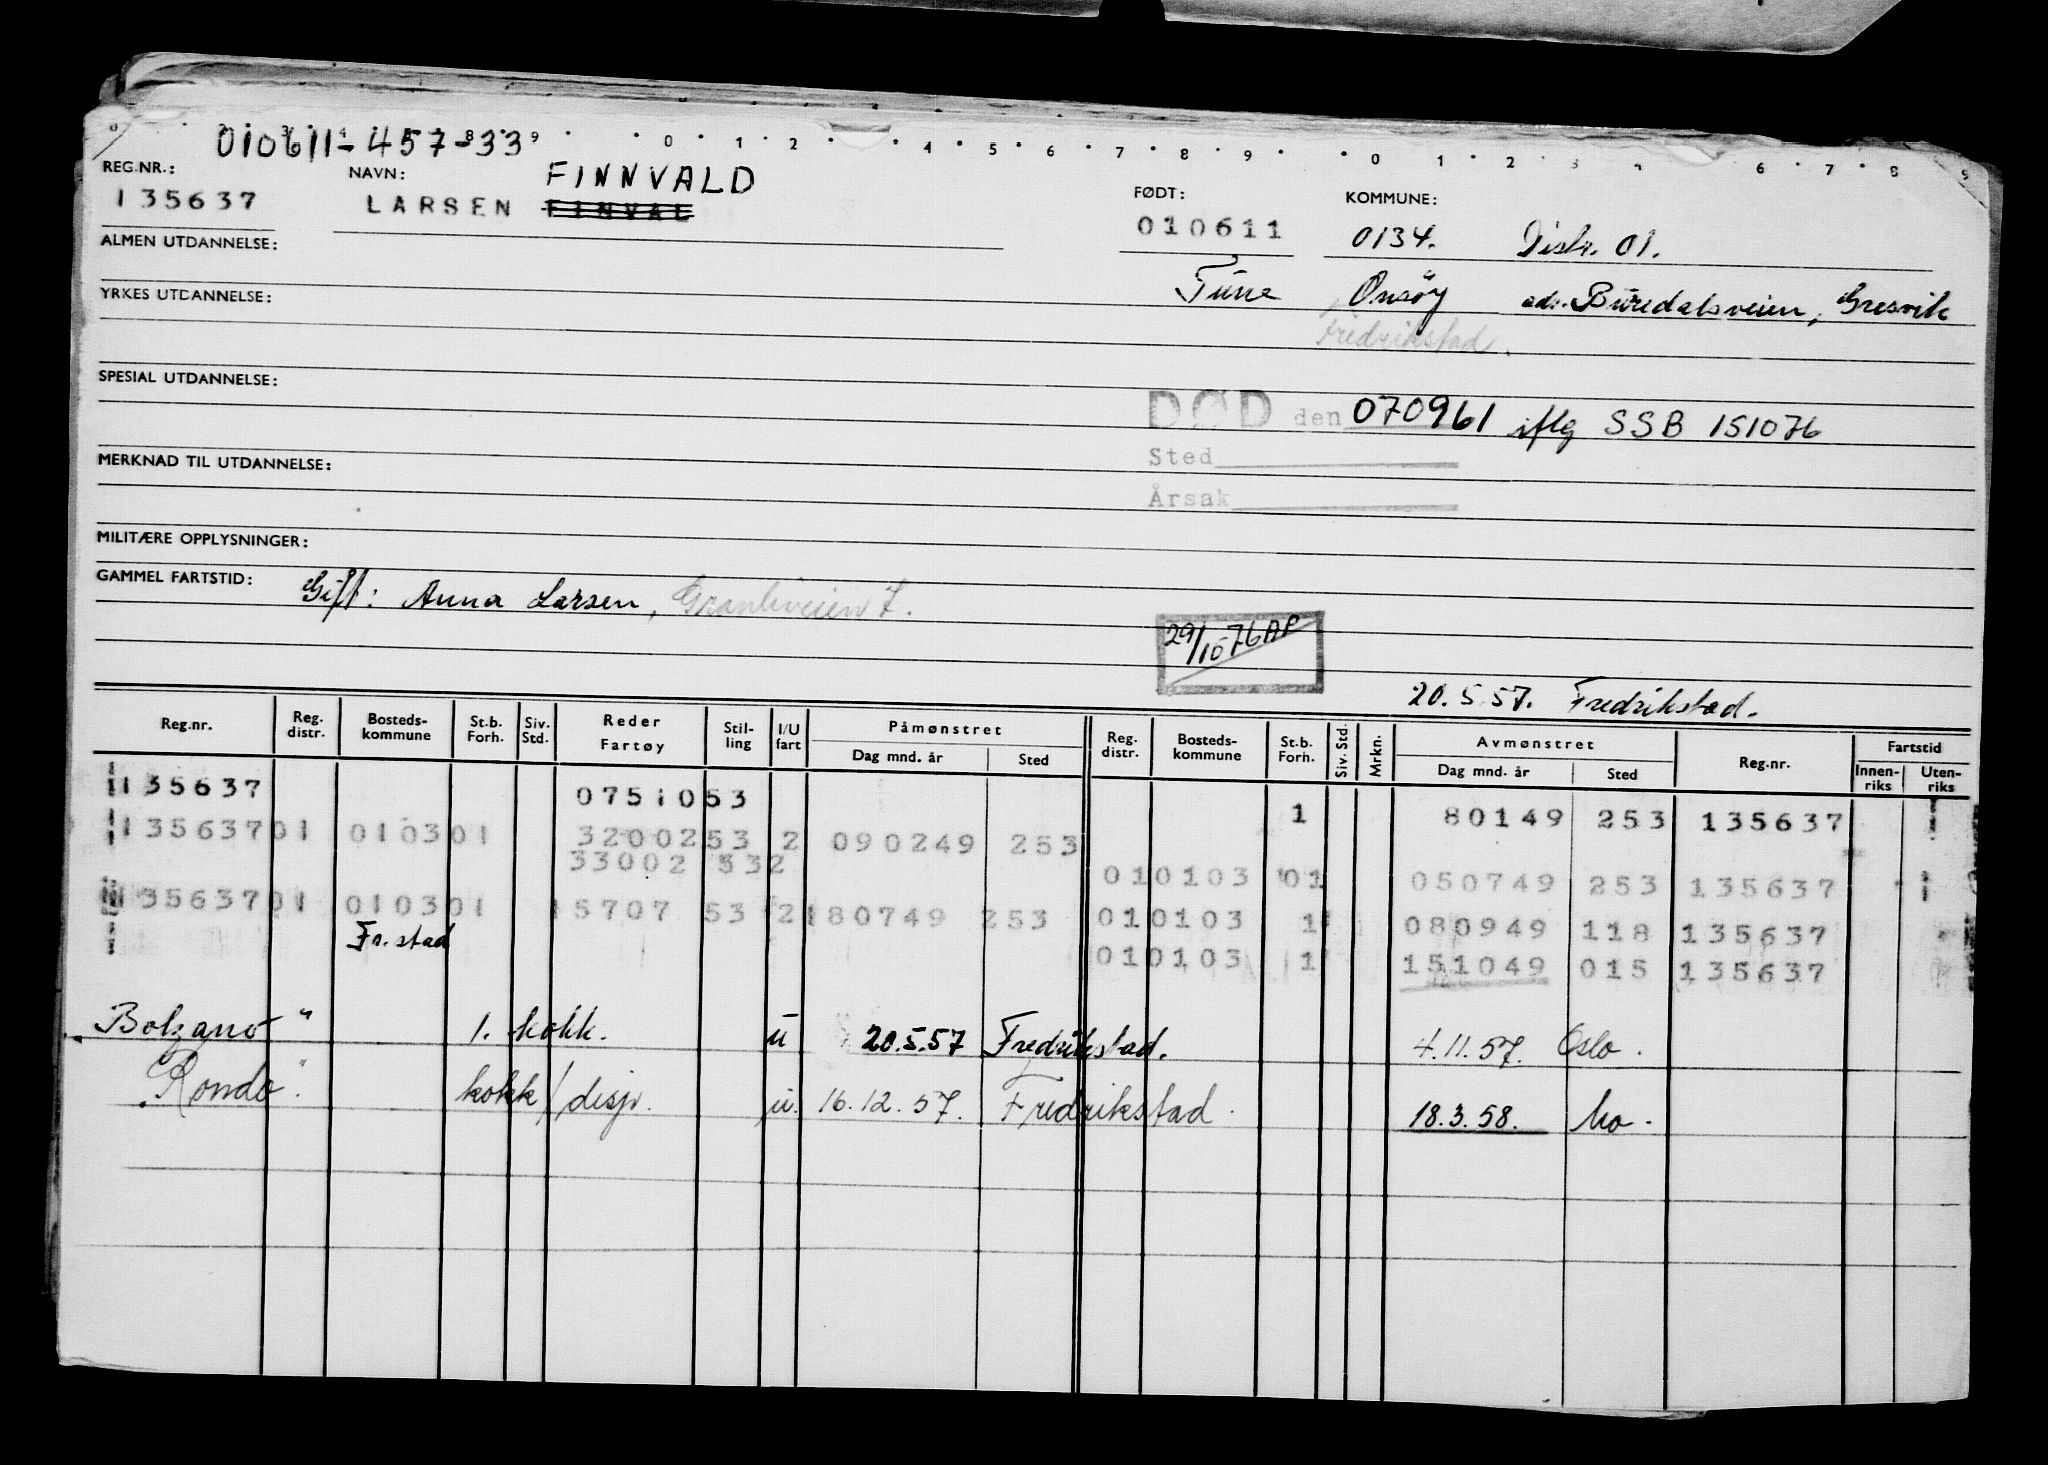 010611-457-33
0 1 2 4 5 6 7 8 9 0 1 2 3 6 7 8 9
REG.NR.: NAVN: FINNVALD FØDT: KOMMUNE:
135637 LARSEN FINVAL 010611 0134. Distr. 01.
ALMEN UTDANNELSE:
Tune Onsøy adr. Buredalsveien, Gresvik
YRKES UTDANNELSE:
Fredrikstad.
SPESIAL UTDANNELSE:
DØD den 070961 iflg SSB 151076
Sted
MERKNAD TIL UTDANNELSE:
Årsak
MILITÆRE OPPLYSNINGER:
GAMMEL FARTSTID: Gift: Anna Larsen, Granliveien 7.
29/10 76 AP
20.5.57. Fredrikstad.
Reg.nr. Reg. distr. Bosteds-kommune St.b. Forh. Siv. Std. Reder Fartøy Stil-ling I/U fart Påmønstret Dag mnd. år Sted Reg. distr. Bosteds-kommune St.b. Forh. Siv. Std. Mrkn. Avmønstret Dag mnd. år Sted Reg.nr. Fartstid Innen-riks Uten-riks
135637 0751053 1 80149 253 135637
13563701 010301 3200253 2 090249 253
33002 532 010103 01 050749 253 135637
13563701 010301 15707 53 2180749 253 010103 1 080949 118 135637
Fr.stad 010103 1 151049 015 135637
Bolzano " 1. kokk. u 20.5.57 Fredrikstad. 4.11.57. Oslo.
Rondo " kokk/disp. u. 16.12.57. Fredrikstad. 18.3.58. Mo.